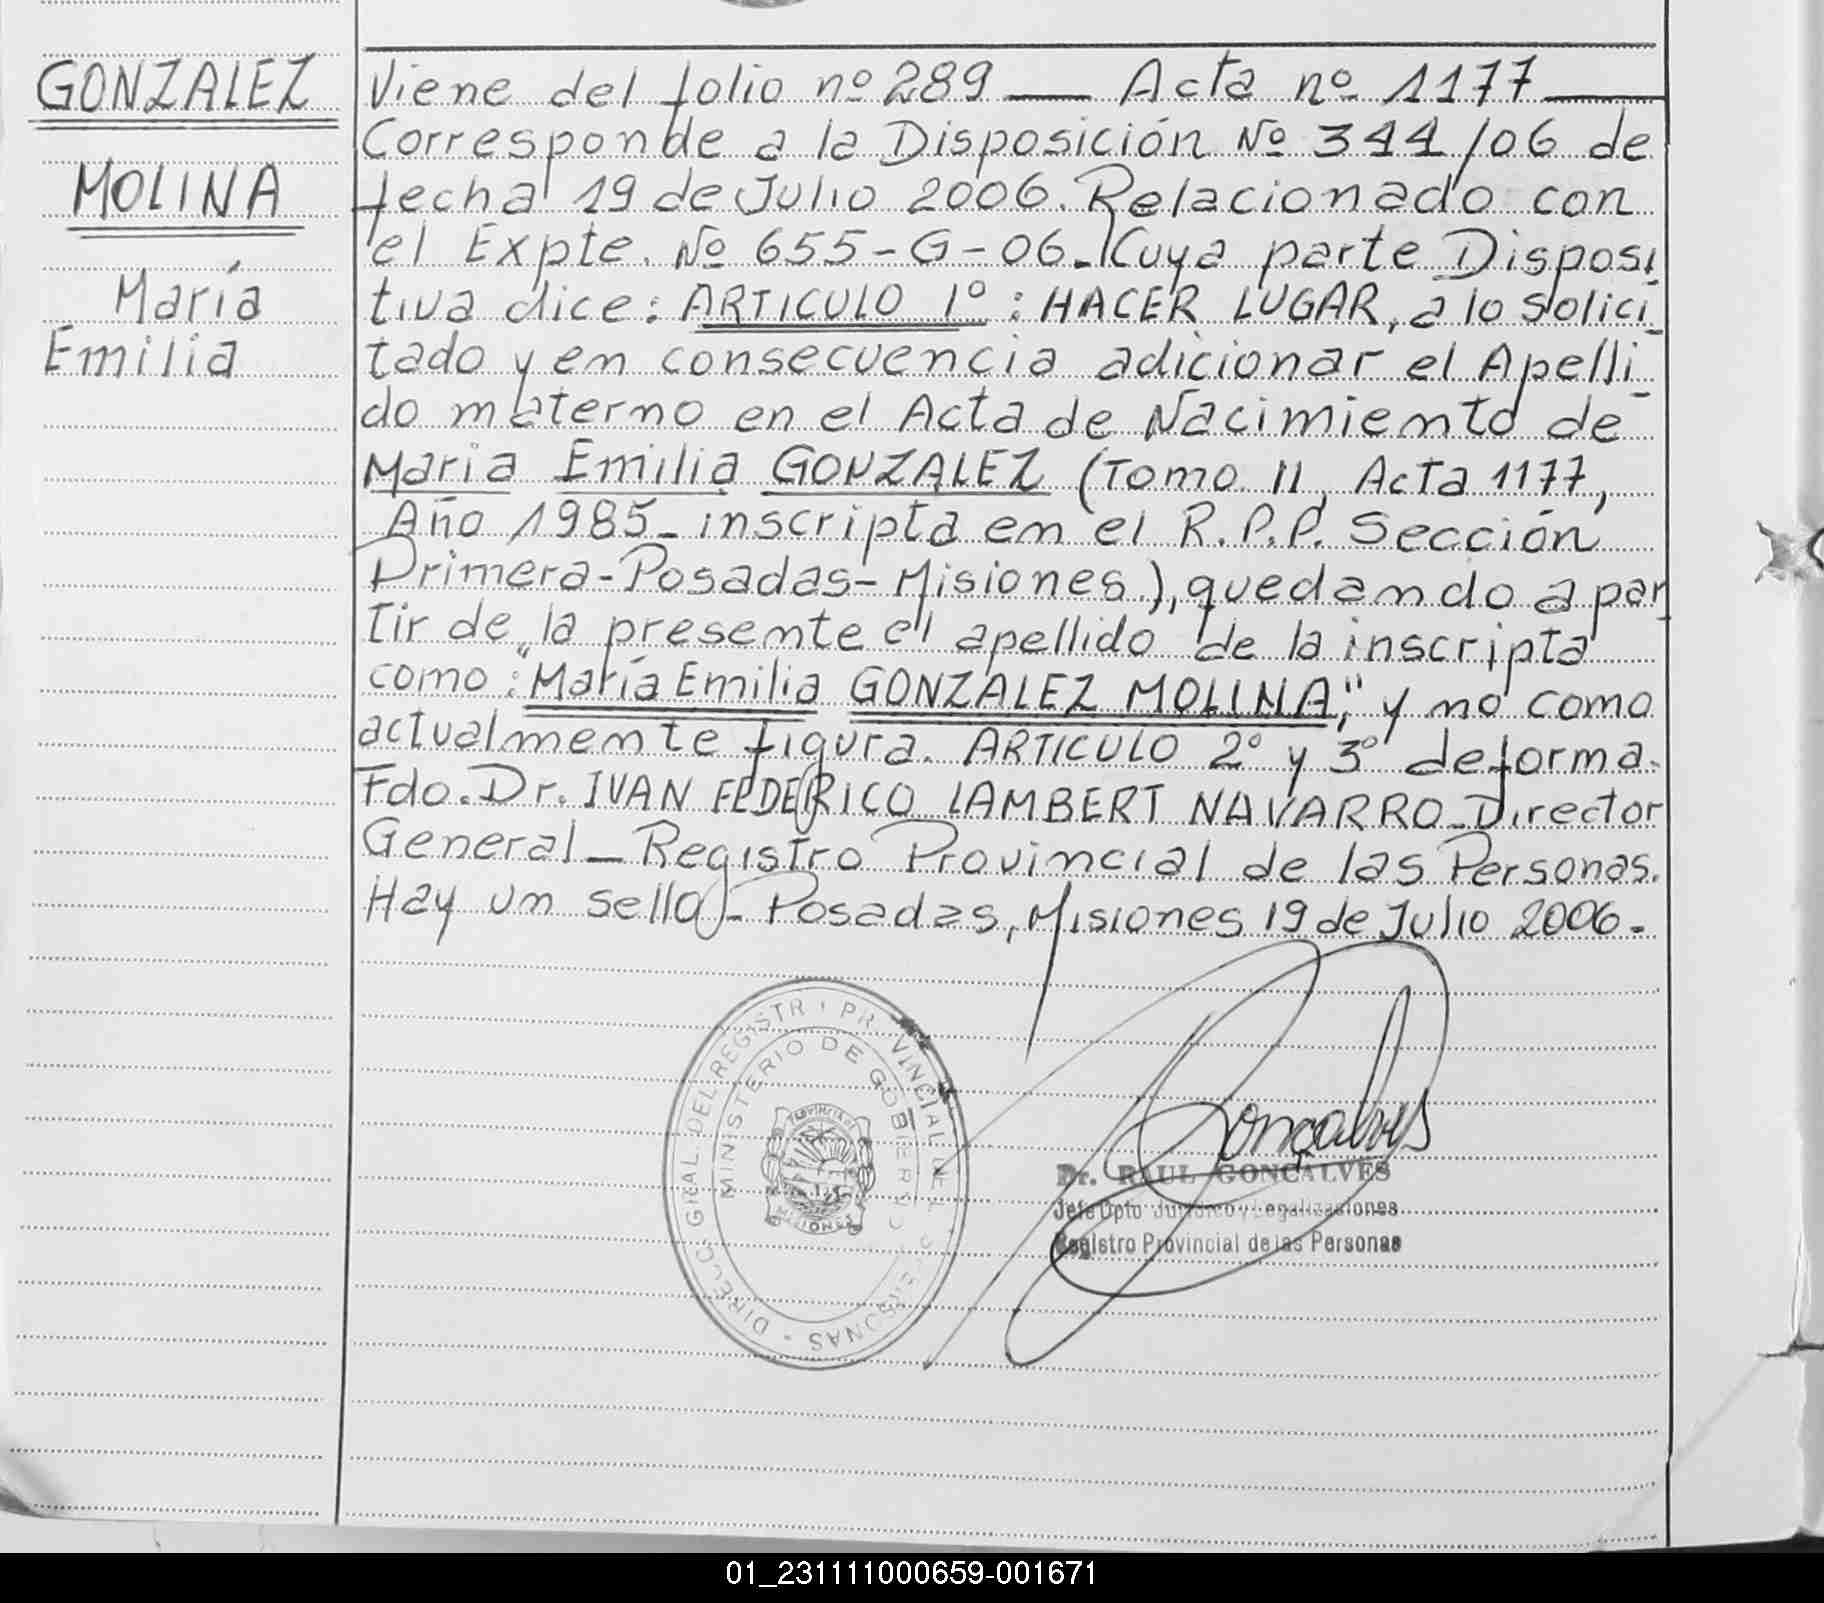 GONZALEZ
MOLINA
María
Emilia
Viene del folio nº 289 — Acta nº 1177 —
Corresponde a la Disposición Nº 344/06 de
fecha 19 de Julio 2006. Relacionado con
el Expte. Nº 655-G-06. Cuya parte Disposi
tiva dice: ARTICULO 1º: HACER LUGAR, a lo solici_
tado y en consecuencia adicionar el Apelli_
do materno en el Acta de Nacimiento de
Maria Emilia GONZALEZ (Tomo II, Acta 1177,
Año 1985_ inscripta en el R.P.P. Sección
Primera-Posadas-Misiones), quedando a par_
tir de la presente el apellido de la inscripta
como: "María Emilia GONZALEZ MOLINA", y no como
actualmente figura. ARTICULO 2º y 3º de forma.
Fdo. Dr. IVAN FEDERICO LAMBERT NAVARRO_Director
General_Registro Provincial de las Personas.
Hay un sello_ Posadas, Misiones 19 de Julio 2006.-
DIRECC. GRAL. DEL REGISTR PR VINCIAL DE PERSONAS -
MINISTERIO DE GOBIERN
PROVINCIA
MISIONES
Gonçalves
Dr. RAUL GONÇALVES
Jefe Dpto Jurídico y Legalizaciones
Registro Provincial de las Personas
01_231111000659-001671